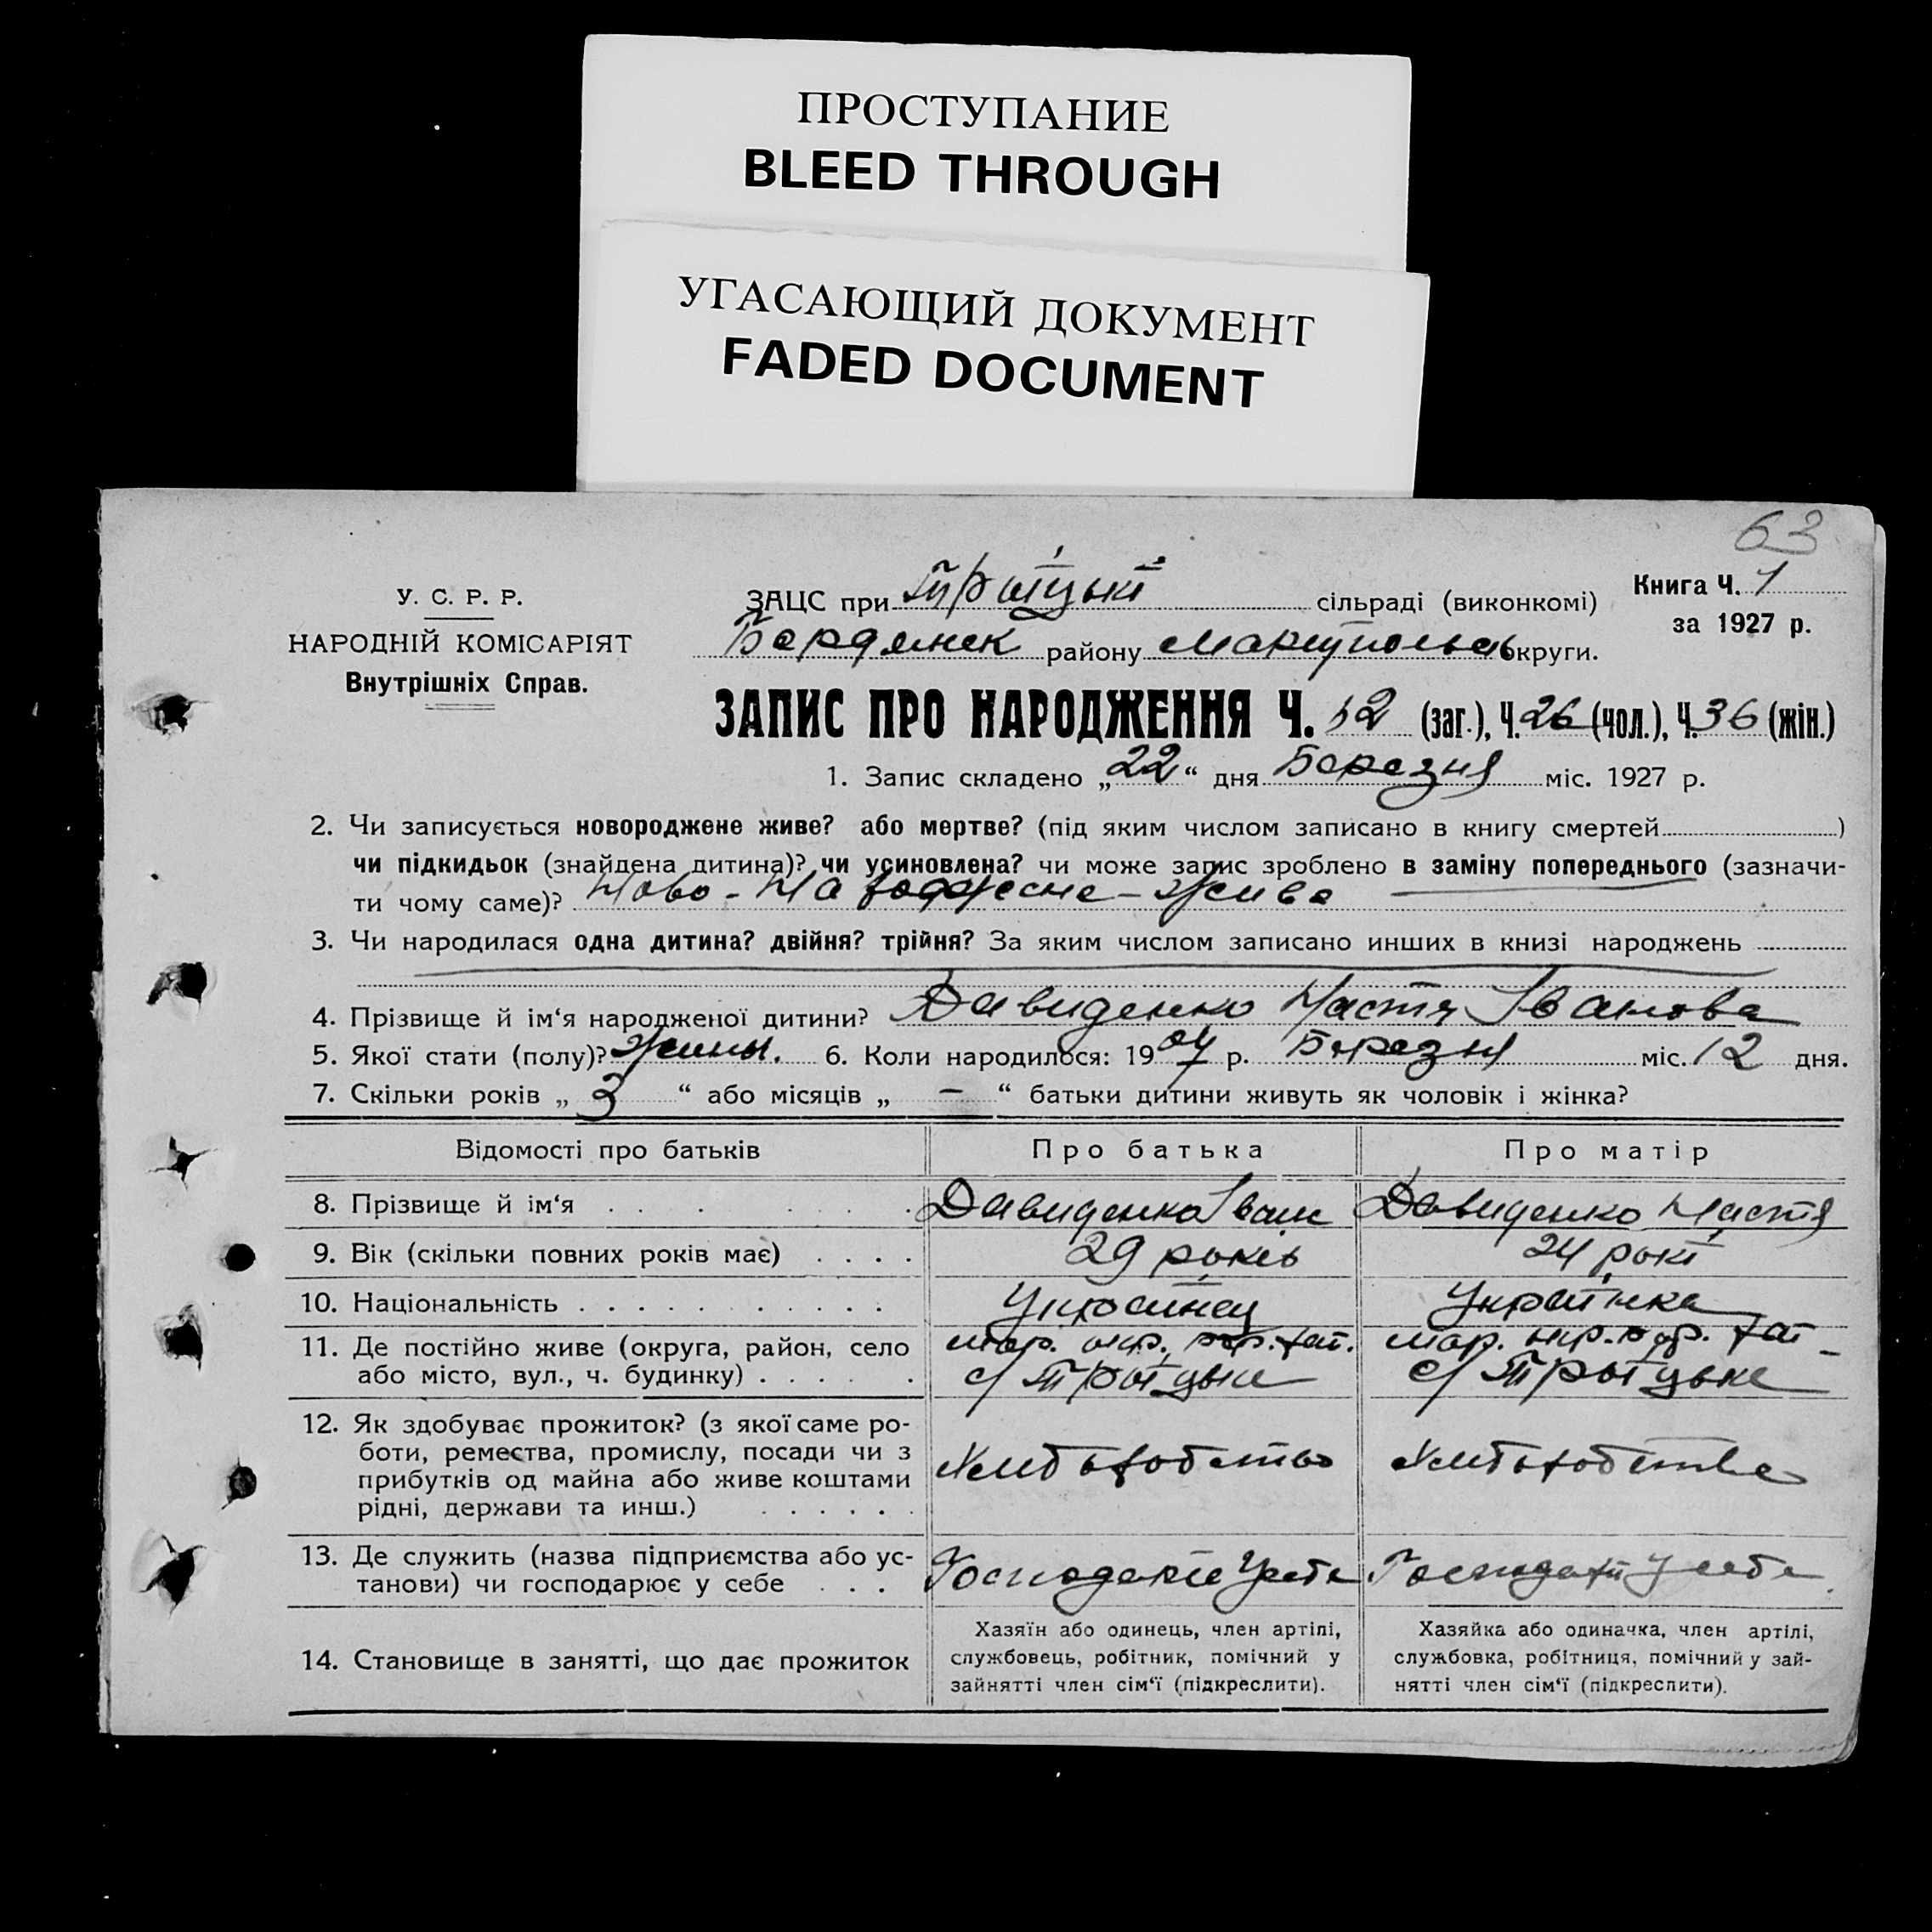 ПРОСТУПАНИЕ
BLEED THROUGH
УГАСАЮЩИЙ ДОКУМЕНТ
FADED DOCUMENT
63
У. С. Р. Р.
НАРОДНІЙ КОМІСАРІЯТ
Внутрішніх Справ.
ЗАЦС при Троїцькі сільраді (виконкомі)
Книга Ч. 1
за 1927 р.
Бердянск району Маріупольсь округи.
ЗАПИС ПРО НАРОДЖЕННЯ Ч. 62 (заг.), Ч. 26 (чол.), Ч. 36 (жін.)
1. Запис складено „22“ дня Березня міс. 1927 р.
2. Чи записується новороджене живе? або мертве? (під яким числом записано в книгу смертей )
чи підкидьок (знайдена дитина)? чи усиновлена? чи може запис зроблено в заміну попереднього (зазначи-
ти чому саме)? Ново-Народжене-живе
3. Чи народилася одна дитина? двійня? трійня? За яким числом записано инших в книзі народжень
4. Прізвище й ім‘я народженої дитини? Давиденко Настя Іванова
5. Якої стати (полу)? 6. Коли народилося: 19 р. Березня міс. 12 дня.
7. Скільки років „ 3 “ або місяців „ – “ батьки дитини живуть як чоловік і жінка?
Відомості про батьків
Про батька
Про матір
8. Прізвище й ім‘я
Давиденко Іван
Давиденко Настя
9. Вік (скільки повних років має)
29 років
24 рокі
10. Національність
Українец
Українка
11. Де постійно живе (округа, район, село
або місто, вул., ч. будинку)
мар. окр.
с/Троїцьке
мар. окр.
с/Троїцьке
12. Як здобуває прожиток? (з якої саме ро-
боти, ремества, промислу, посади чи з
прибутків од майна або живе коштами
рідні, держави та инш.)
Хлиборобство
Хлиборобство
13. Де служить (назва підприємства або ус-
танови) чи господарює у себе
Господарює у себе
у себе
14. Становище в занятті, що дає прожиток
Хазяїн або одинець, член артілі,
службовець, робітник, помічний у
зайнятті член сім‘ї (підкреслити).
Хазяйка або одиначка, член артілі,
службовка, робітниця, помічний у зай-
нятті член сім‘ї (підкреслити).